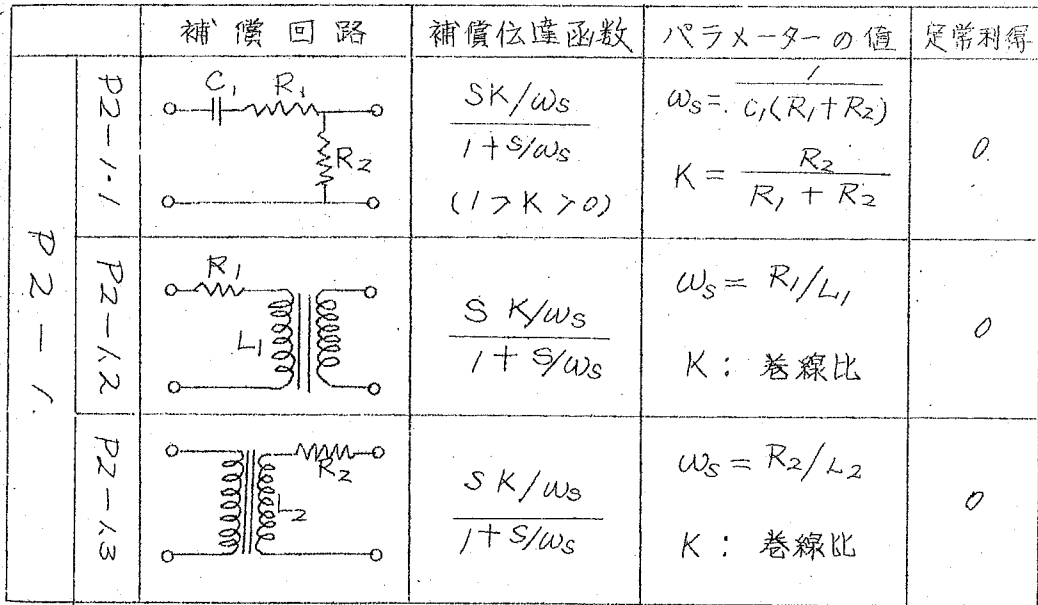 補償回路 補償伝達函数 パラメーターの値 定常利得
P2-1.
P2-1.1
C₁ R₁
R₂
SK/ωs
1+S/ωs
(1>K>0)
ωs = 1
C₁(R₁+R₂)
K = R₂
R₁ + R₂
0
P2-1.2
R₁
L₁
S K/ωs
1+ S/ωs
ωs = R₁/L₁
K: 巻線比
0
P2-1.3
R₂
L₂
S K/ωs
1+S/ωs
ωs = R₂/L₂
K: 巻線比
0